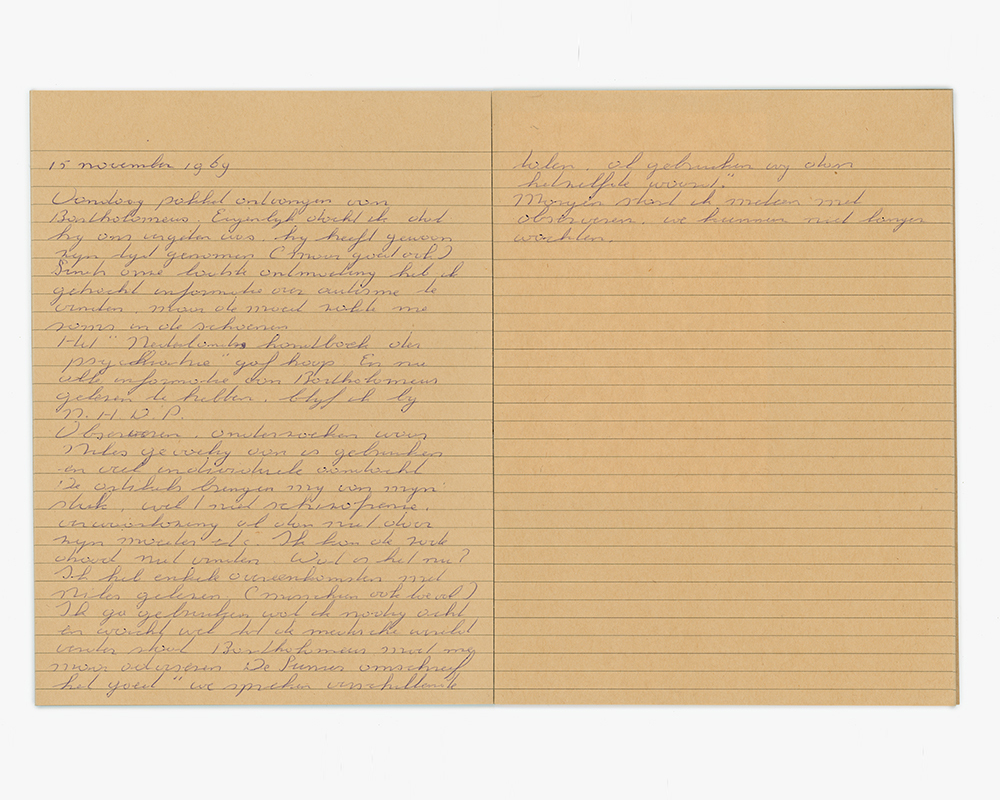 15 november 1969
Vandaag pakket ontvangen van
Bartholomeus. Eigenlijk dacht ik dat
hij ons vergeten was. hij heeft gewoon
zijn tijd genomen (maar goed ook)
Sinds onze laatste ontmoeting heb ik
getracht informatie over autisme te
vinden, maar de moed zakte me
soms in de schoenen
Het "Nederlands handboek der
psychiatrie" gaf hoop. En nu
alle informatie van Bartholomeus
gelezen te hebben, blijf ik bij
N. H. D. P.
Observeren, onderzoeken waar
Niles gevoelig aan is gebruiken
en veel individuele aandacht
De artikels brengen mij van mijn
stuk, wel / niet schizofrenie,
verwaarlozing al dan niet door
zijn moeder etc. Ik kan de rode
draad niet vinden. Wat is het nu?
Ik heb enkele overeenkomsten met
Niles gelezen. (misschien ook teveel)
Ik ga gebruiken wat ik nodig acht
en wacht wel tot de medische wereld
verder staat. Bartholomeus moet mij
maar adviseren. De Primus omschreef
het goed "we spreken verschillende
talen, of gebruiken wij dan
hetzelfde woord."
Morgen start ik meteen met
observeren, we kunnen niet langer
wachten.